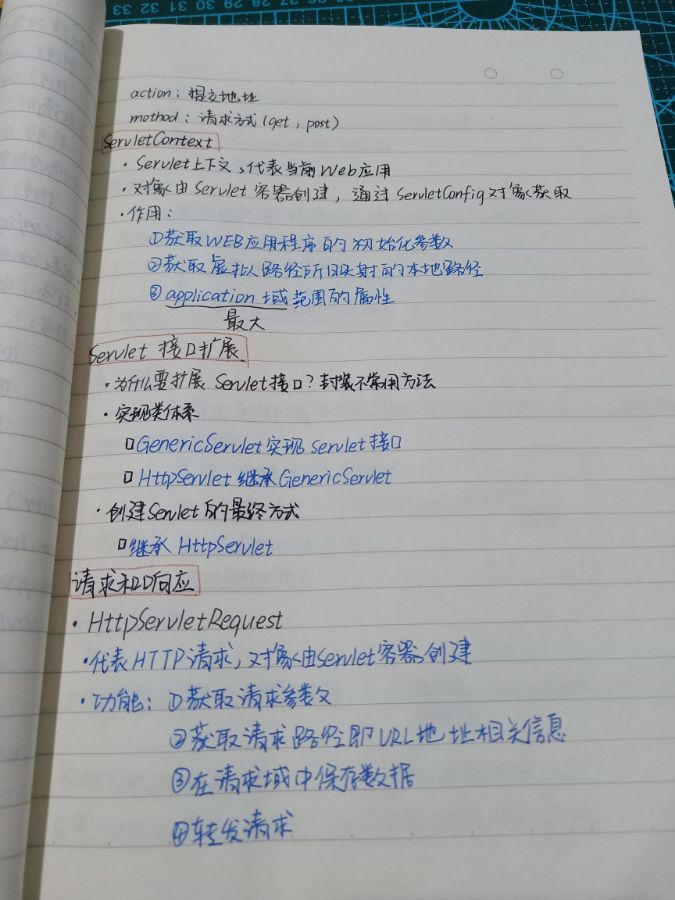 action：提交地址
mothod：请求方式(get，post)
ServletContext
· Servlet上下文，代表当前Web应用
· 对象由Servlet容器创建，通过ServletConfig对象获取
· 作用：
①获取WEB应用程序的初始化参数
②获取虚拟路径所映射的本地路径
③application域范围的属性
最大
Servlet 接口扩展
· 为什么要扩展Servlet接口？封装不常用方法
· 实现类体系
□GenericServlet实现Servlet接口
□HttpServlet继承GenericServlet
· 创建Servlet的最终方式
□继承HttpServlet
请求和响应
· HttpServletRequest
· 代表HTTP请求，对象由Servlet容器创建
· 功能：①获取请求参数
②获取请求路径即URL地址相关信息
③在请求域中保存数据
④转发请求